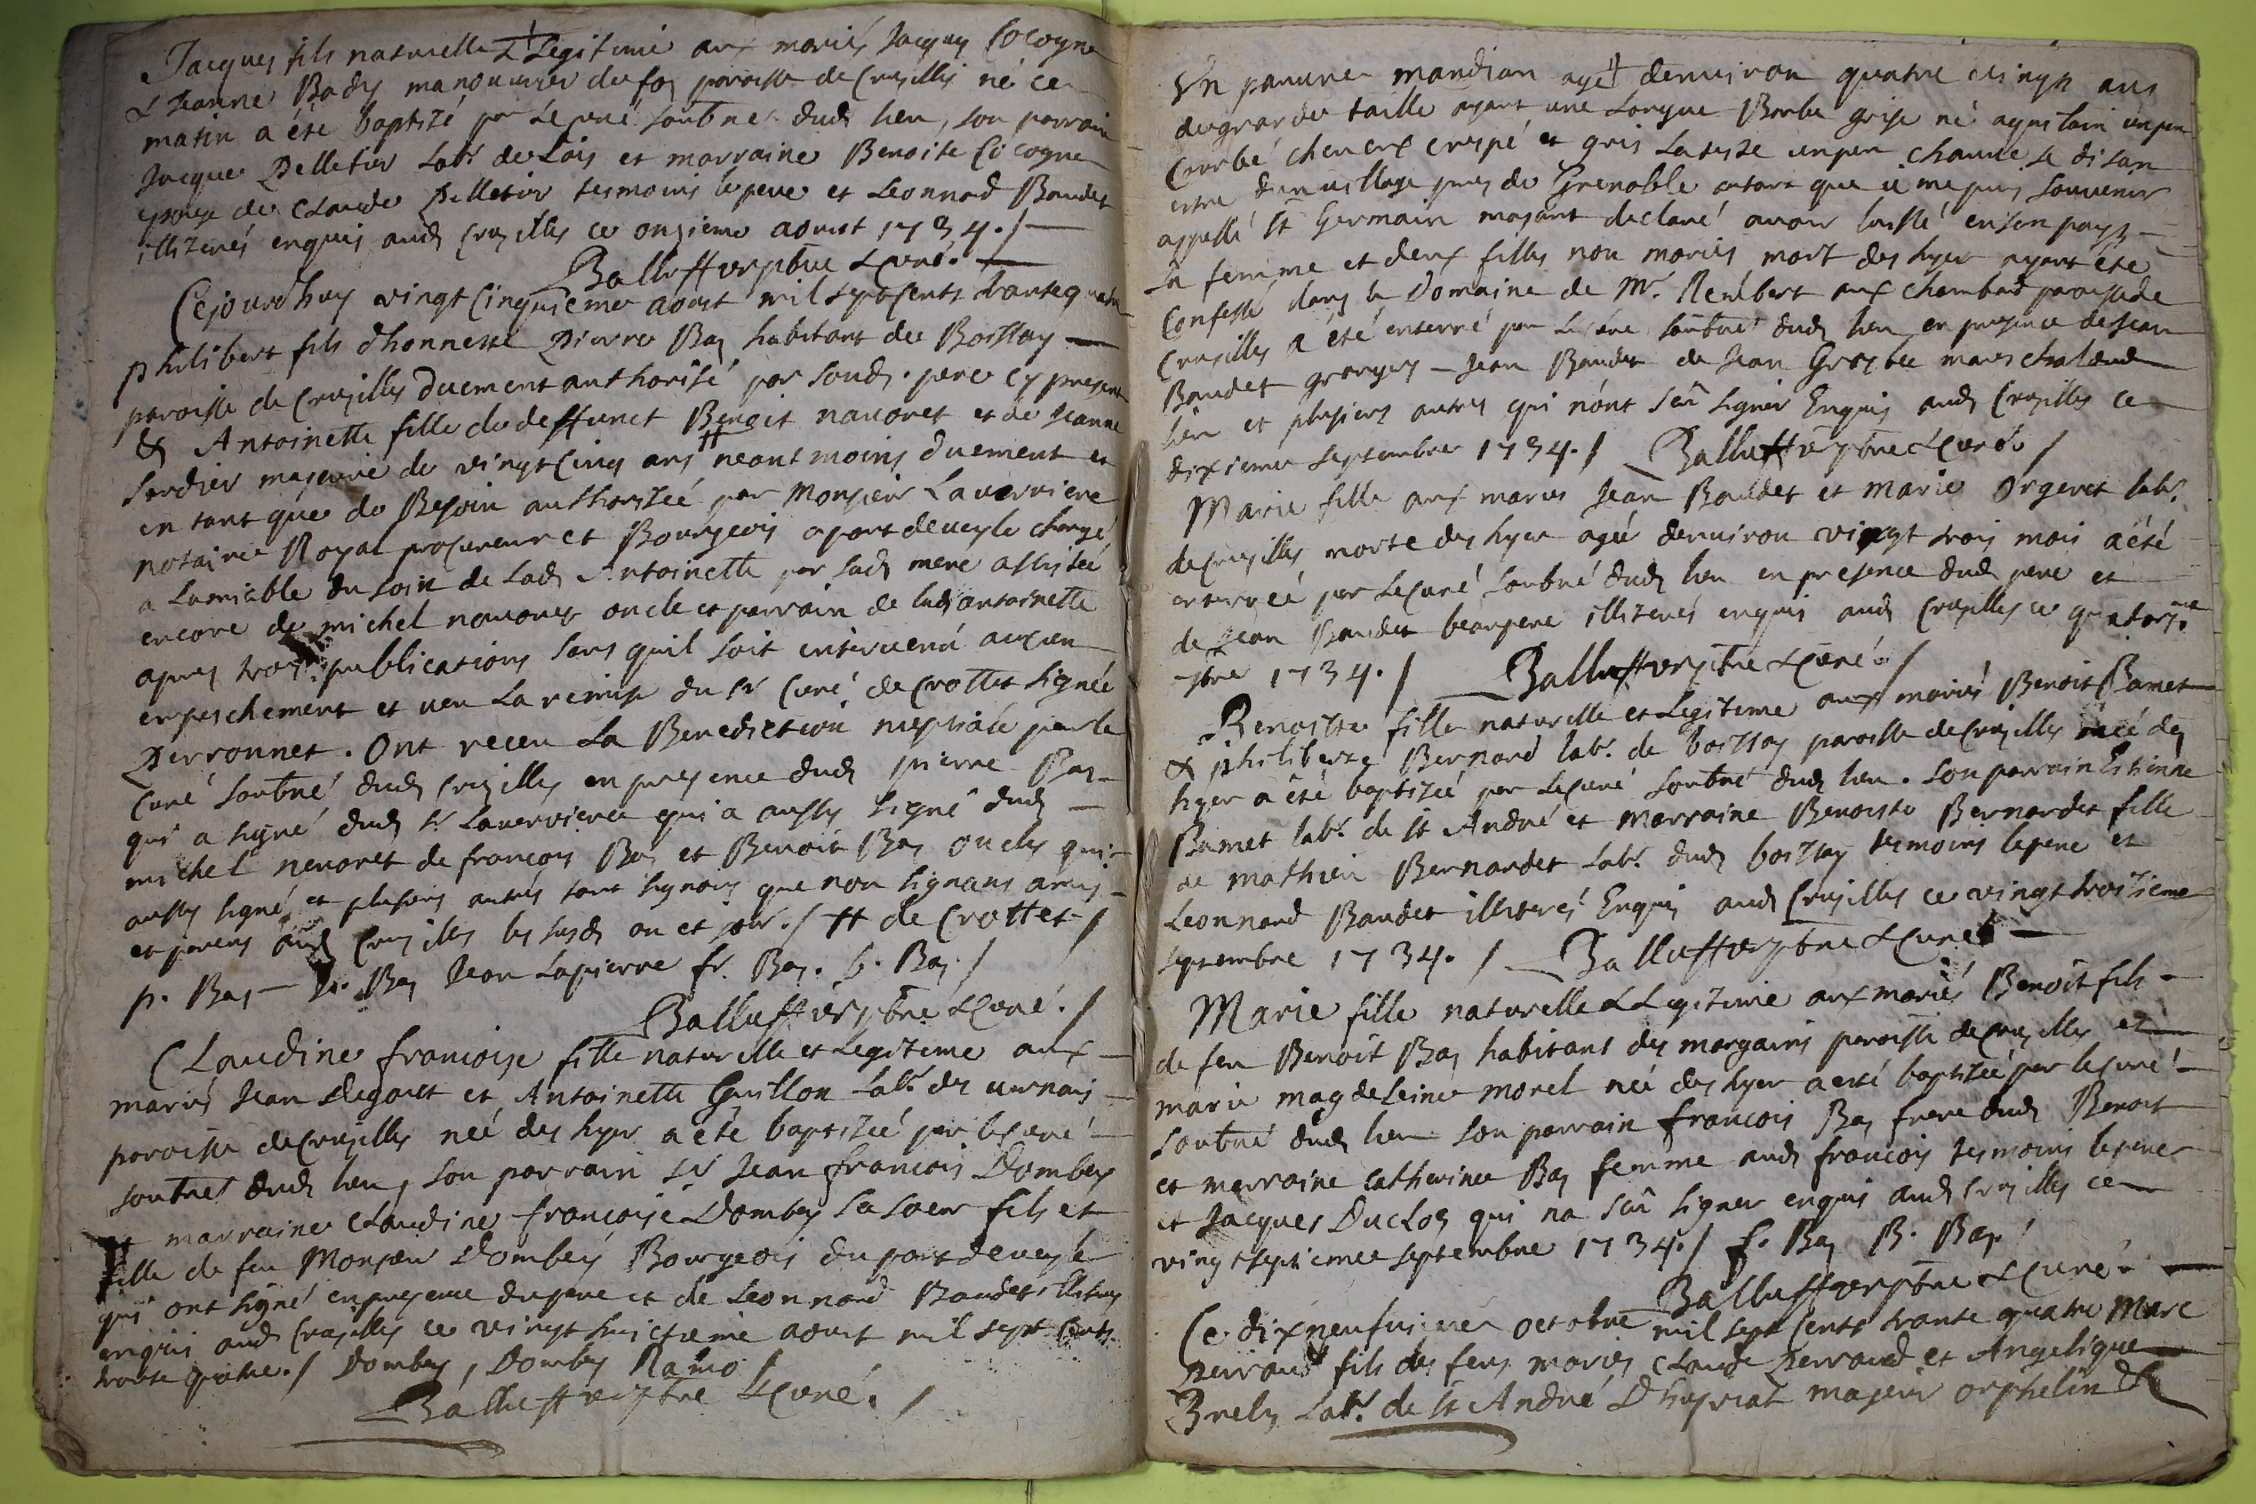 Jacques fils naturelle & Legitime aux mariés Jacques Cocogne
& Jeanne Bady manouvrier du foz paroisse de Cruzilles né ce
matin a été baptizé par Le curé soubné dud lieu, son parrain
Jacque Pelletier Labr de Lais et marraine Benoite Cocogne
epouse de Claude Pelletier tesmoins le pere et Leonnard Baudet
illiterés enquis aud Cruzilles ce onzieme aoust 1734./
Balluffier ptre & Curé.
Cejourdhuy vingt Cinquieme aoust mil sept Cents trante quatre
philibert fils dhonneste Pierre Bas habitant de Boissay
paroisse de Cruzilles duement authorisé par sond. pere cy present
& Antoinette fille du deffunct Benoit navoret et de Jeanne
Sordier majeure de vingt Cinq ans # neant moins duement et
en tant que de Besoin authorizeé par Monsieur Laverniere
notaire Royal procureur et Bourgeois a pont de veyle chargé
a Lamiable du soin de Lad Antoinette par sad mere assistée
encore de michel navoret oncle et parrain de lad antoinette
apres trois publications sans quil soit intervenu aucun
enpeschement et veu La remise du sr Curé de Crottet signée
Perronnet. Ont receu La Benediction nuptiale par le
Curé soubné dud Cruzilles en presence dud pierre Bas
qui a signé dud sr Laverniere qui a aussy signé dud
michel navoret de francois Bas et Benoit Bas oncles qui
aussy signé et plusieurs autres tant signans que non signans amis
et parens aud Cruzilles les susd an et jour./ # de Crottet /
p. Bas Bas Jean Lapierre fr. Bas. b. Bas./
Balluffier ptre & Curé./
Claudine francoise fille naturelle et Legitime aux
mariés Jean Degoutt et Antoinette Guillon Labr des vernais
paroisse de Cruzilles neé des hyer a été baptizée par le curé
soubné dud lieu, son parrain sr Jean francois Dombey
et marraine Claudine francoise Dombey sa soeur fils et
fille de feu Monsieur Dombey Bourgeois du pont de veyle
qui ont signé en presence du pere et de Leonnard Baudet illiterés
enquis aud Cruzilles ce vingt huictieme aoust mil sept Cents
trante quatre./ Dombey, Dombey Ramo
Balluffier ptre & Curé./
Un pauvre mandian agé denviron quatre vingts ans
de grande taille ayant une Longue Barbe grise né aquilain un peu
Courbé cheveux crespé et gris La teste un peu chauve se disan
estre dun village pres de Grenoble autant que je me puis souvenir
appellé st Germain mayant declaré avoir laissé en son pays
Sa femme et deux filles non mariés mort des hyer ayant été
Confessé dans le Domaine de Mr. Rembert aux chambard paroisse de
Cruzilles a été enterré par Le Curé soubné dud lieu en presence de Jean
Baudet granger Jean Baudet de Jean Grosbec mareschal dud
lieu et plusieurs autres qui nont sçu signer Enquis aud Cruzilles ce
dixieme septembre 1734./ Balluffier ptre & Curé./
Marie fille aux mariés Jean Baudet et Marie Orgeret labr
de Cruzilles morte des hyer ageé denviron vingt trois mois a été
enterreé par Le Curé soubné dud lieu en presence dud pere et
de Jean Baudet beaupere illiterés enquis aud Cruzilles ce quatorz.me
7bre 1734./ Balluffier ptre & Curé./
Benoitte fille naturelle et Legitime aux mariés Benoit Pamet
& philiberte Bernard labr. de boissay paroisse de Cruzilles neé des
hyer a été baptizée par Le Curé soubné dud lieu. Son parrain Estienne
Pamet labr. de st André et marraine Benoiste Bernardet fille
de mathieu Bernardet Labr. dud boissay tesmoins le pere et
Leonnard Baudet illiterés Enquis aud Cruzilles ce vingt troisieme
septembre 1734./ Balluffier ptre & Curé
Marie fille naturelle & Legitime aux mariés Benoit fils
de feu Benoit Bas habitant des margains paroisse de Cruzilles et
marie magdeleine morel neé des hyer a eté baptizée par le curé
soubné dud lieu son parrain francois Bas frere dud Benoit
et marraine Catherine Bas femme aud francois tesmoins le pere
et Jacques Duclos qui na sçu signer enquis aud Cruzilles ce
vingt septieme septembre 1734./ f. Bas B. Bas.
Balluffier ptre & Curé.
Ce dixneufvieme octobre mil sept Cents trante quatre Marc
Perraud fils des feus mariés Claude Perraud et Angelique
Brely Labr. de st André Dhuyriat majeur orphelin &